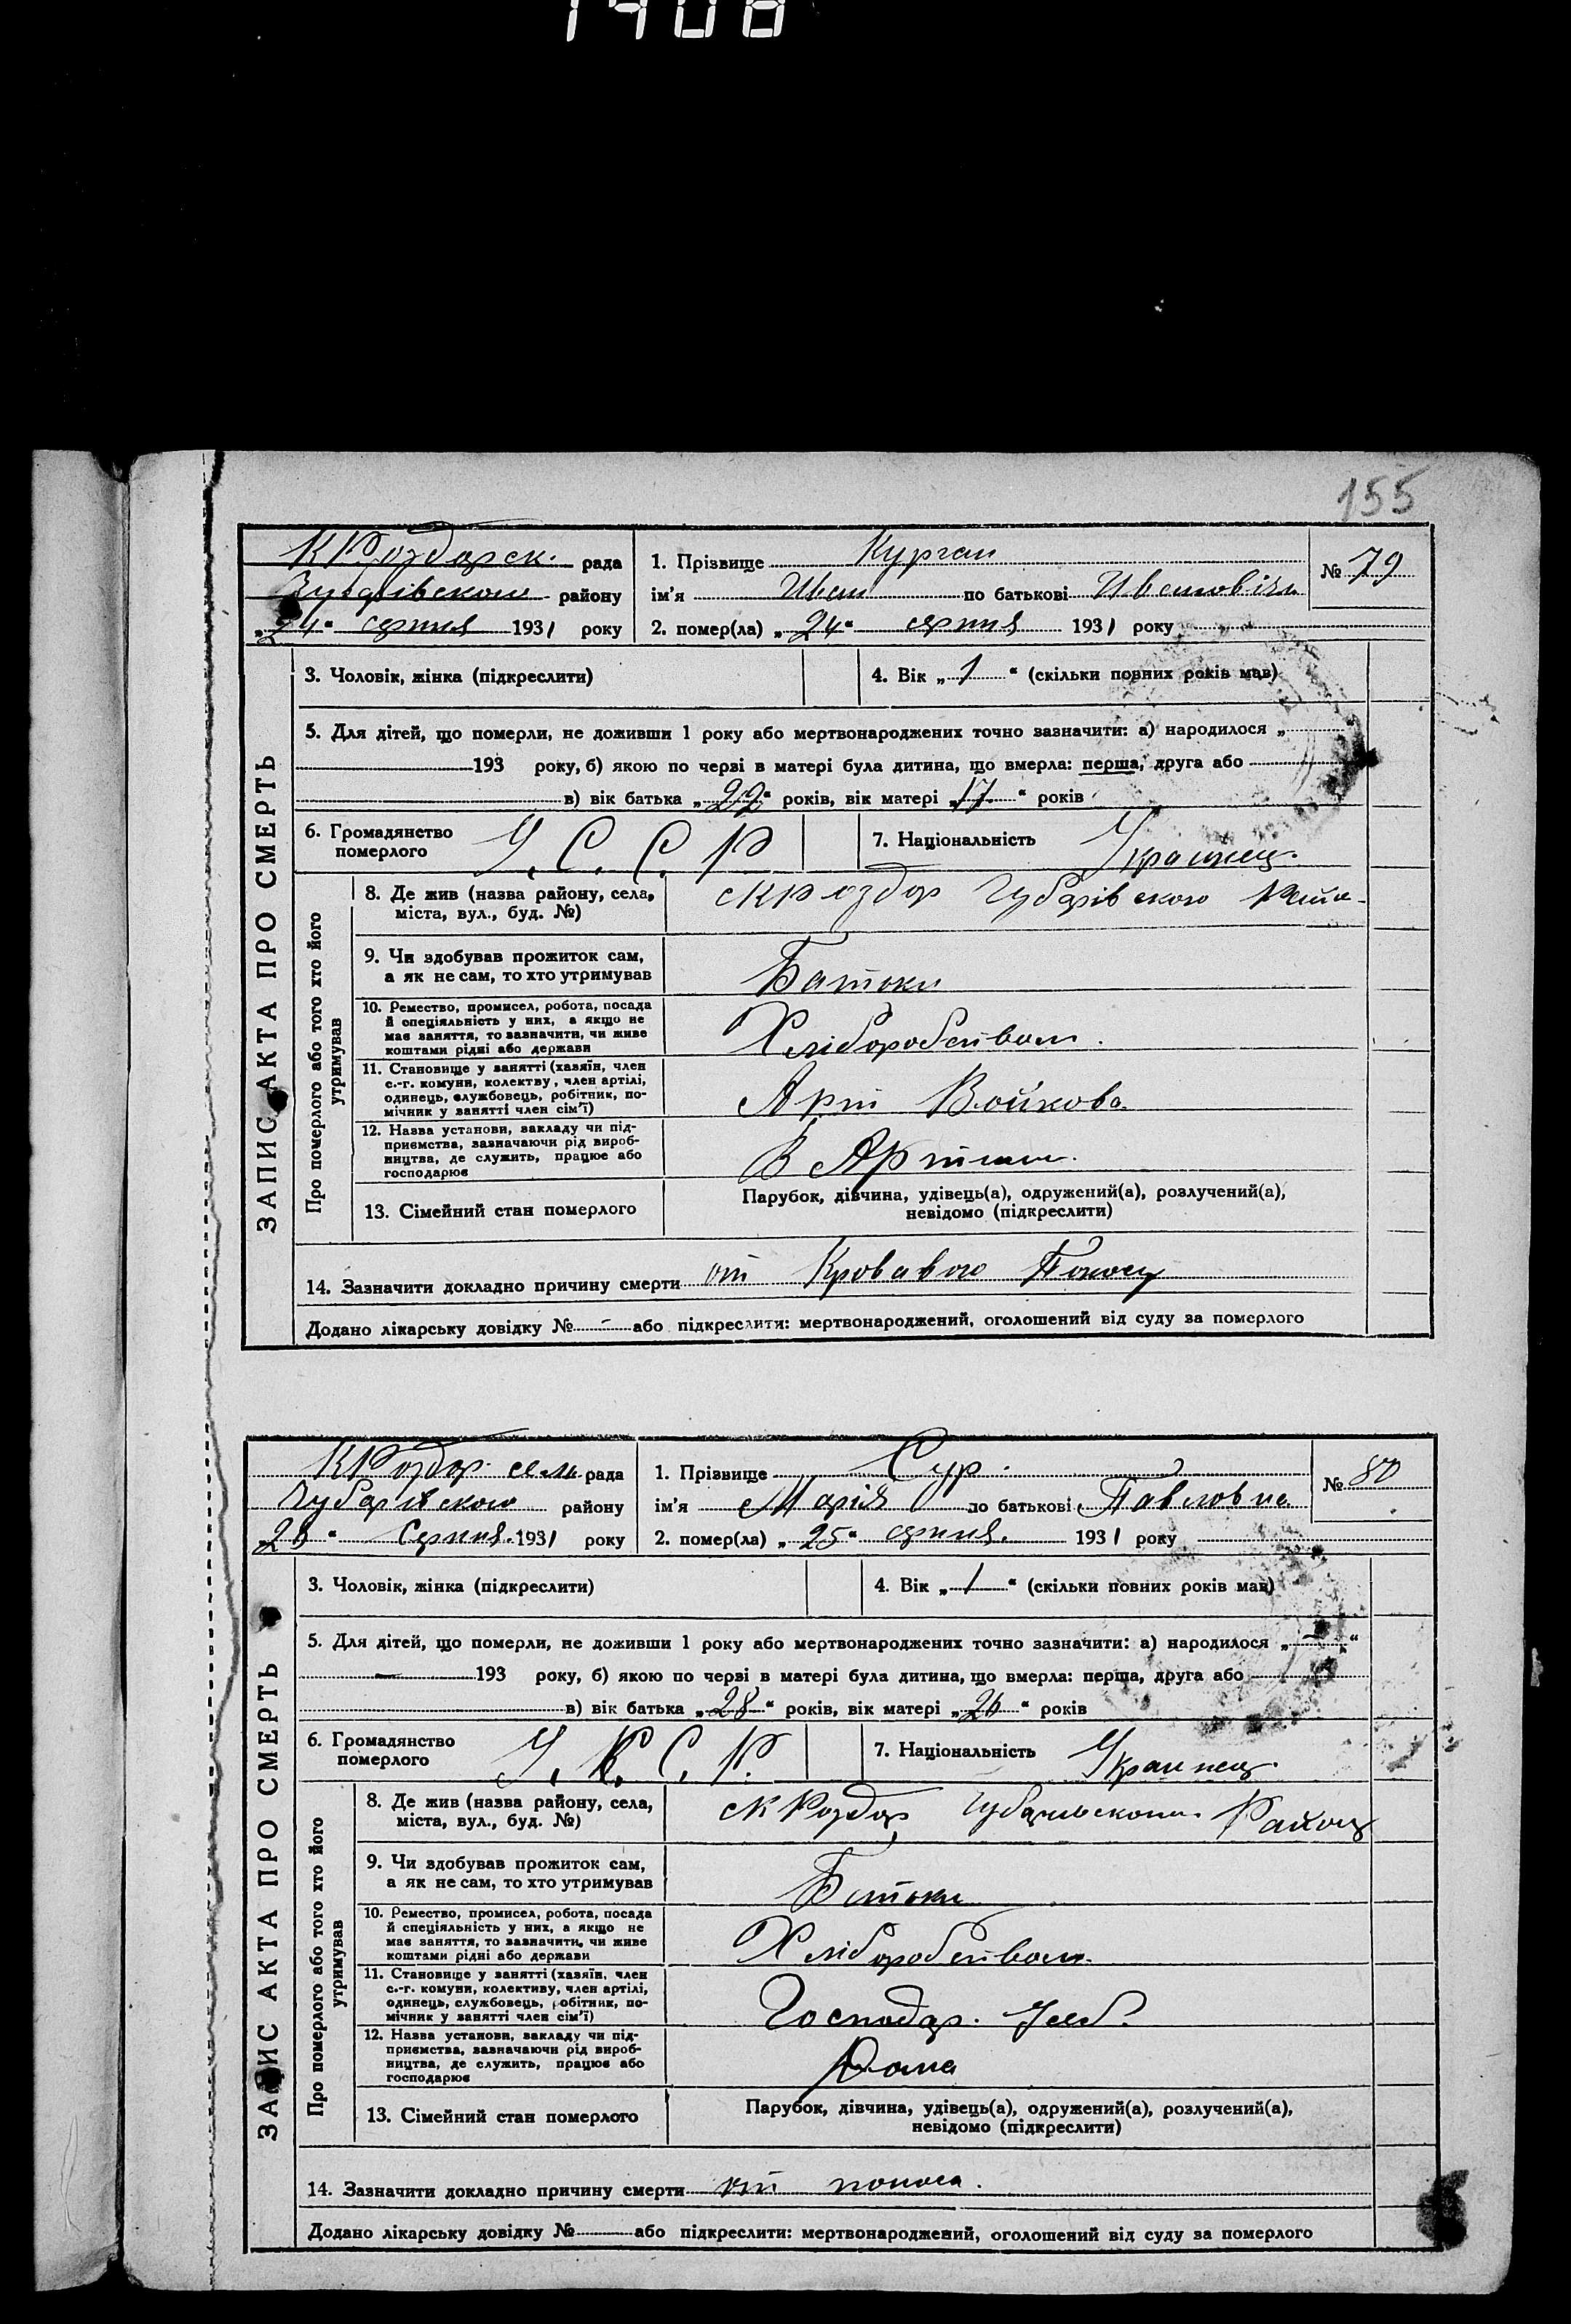 1408
155
К Роздорск. рада
Чубарівского району
„24“ серпня 1931 року
1. Прізвище Курган
ім'я Иван по батькові Ивановіч
№ 79
2. помер(ла) „24“ серпня 1931 року
ЗАПИС АКТА ПРО СМЕРТЬ
3. Чоловік, жінка (підкреслити)
4. Вік „1“ (скільки повних років мав)
5. Для дітей, що померли, не доживши 1 року або мертвонароджених точно зазначити: а) народилося „
193 року, б) якою по черві в матері була дитина, що вмерла: перша, друга або
в) вік батька „22“ років, вік матері „17“ років
6. Громадянство
померлого
У. С. С. Р
7. Національність Украинец.
Про померлого або того хто його
утримував
8. Де жив (назва району, села,
міста, вул., буд. №)
с К Роздор Чубарівского Райо-
9. Чи здобував прожиток сам,
а як не сам, то хто утримував
Батьки
10. Ремество, промисел, робота, посада
й спеціяльність у них, а якщо не
має заняття, то зазначити, чи живе
коштами рідні або держави
Хліборобством.
11. Становище у занятті (хазяїн, член
с.-г. комуни, колектву, член артілі,
одинець, службовець, робітник, по-
мічник у занятті член сім'ї)
Арт Войкова
12. Назва установи, закладу чи під-
приємства, зазначаючи рід вироб-
ництва, де служить, працює або
господарює
В Артили.
13. Сімейний стан померлого
Парубок, дівчина, удівець(а), одружений(а), розлучений(а),
невідомо (підкреслити)
14. Зазначити докладно причину смерти от Кровавого Поносу
Додано лікарську довідку № - або підкреслити: мертвонароджений, оголошений від суду за померлого
К Роздор. сель рада
Чубарівского району
„ серпня 1931 року
1. Прізвище Сур.
ім'я Марія по батькові Павловна
№ 80
2. помер(ла) „25“ серпня. 1931 року
ЗАПИС АКТА ПРО СМЕРТЬ
3. Чоловік, жінка (підкреслити)
4. Вік „1“ (скільки повних років мав)
5. Для дітей, що померли, не доживши 1 року або мертвонароджених точно зазначити: а) народилося „-“
- 193 року, б) якою по черві в матері була дитина, що вмерла: перша, друга або
в) вік батька „28“ років, вік матері „26“ років
6. Громадянство
померлого
У. С. Р.
7. Національність Украинец.
Про померлого або того хто його
утримував
8. Де жив (назва району, села,
міста, вул., буд. №)
с К Роздор Району
9. Чи здобував прожиток сам,
а як не сам, то хто утримував
Батьки
10. Ремество, промисел, робота, посада
й спеціяльність у них, а якщо не
має заняття, то зазначити, чи живе
коштами рідні або держави
Хліборобством.
11. Становище у занятті (хазяїн, член
с.-г. комуни, колективу, член артілі,
одинець, службовець, робітник, по-
мічник у занятті член сім'ї)
Господар.
12. Назва установи, закладу чи під-
приємства, зазначаючи рід вироб-
ництва, де служить, працює або
господарює
Дома
13. Сімейний стан померлого
Парубок, дівчина, удівець(а), одружений(а), розлучений(а),
невідомо (підкреслити)
14. Зазначити докладно причину смерти от поноса.
Додано лікарську довідку № або підкреслити: мертвонароджений, оголошений від суду за померлого